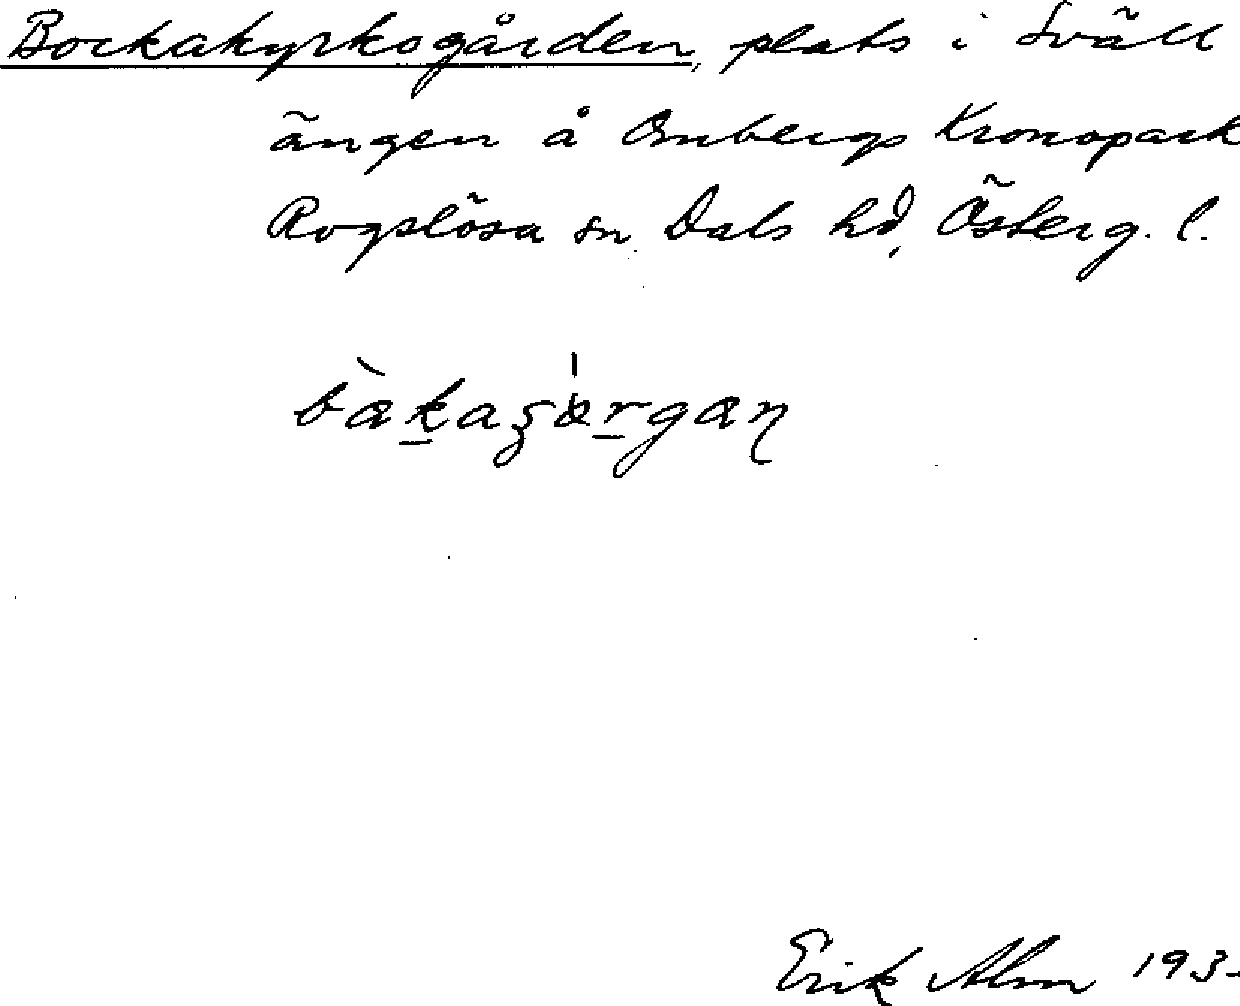 Bockakyrkogården, plats i Sväll
ängen å Ombergs Kronopark
Rogslösa sn Dals hd, Österg. l.
Erik Alm 193-